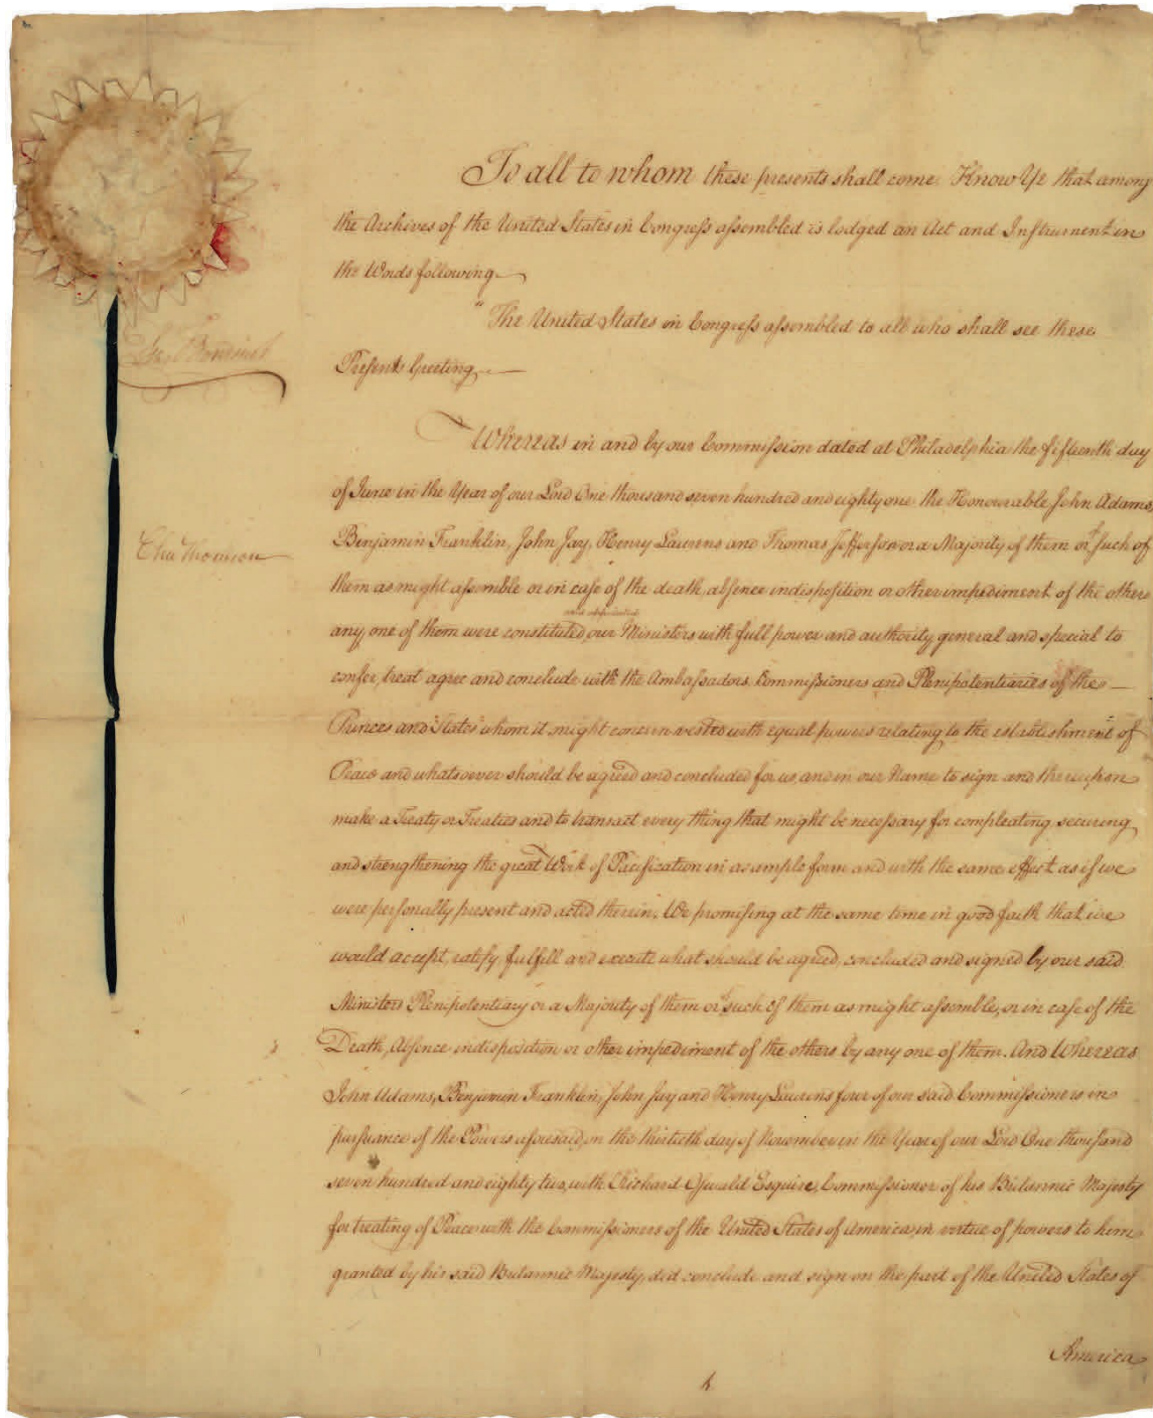 To all to whom these presents shall come. Know Ye that among
the Archives of the United States in Congress assembled is lodged an Act and Instrument in
the Words following
"The United States in Congress assembled to all who shall see these
Presents Greeting
Elias Boudinot
Whereas in and by our Commission dated at Philadelphia the fifteenth day
of June in the Year of our Lord One thousand seven hundred and eighty one the Honourable John Adams,
Benjamin Franklin, John Jay, Henry Laurens and Thomas Jefferson or a Majority of them or of such of
Chas Thomson
them as might assemble or in case of the death, absence indisposition or other impediment of the others
and appointed
any one of them were constituted, our Ministers with full power and authority, general and special to
confer, treat agree and conclude with the Ambassadors, Commissioners and Plenipotentiaries of the
Princes and States whom it might concern vested with equal powers relating to the establishment of
Peace and whatsoever should be agreed and concluded for us, and in our Name to sign and thereupon
make a Treaty or Treaties and to transact every thing that might be necessary for compleating, securing
and strengthening the great Work of Pacification in as ample form and with the same effect as if we
were personally present and acted therein, We promising at the same time in good faith that we
would accept, ratify, fulfill and execute what should be agreed, concluded and signed by our said
Ministers Plenipotentiary or a Majority of them or of such of them as might assemble, or in case of the
Death, Absence indisposition or other impediment of the others by any one of them. And Whereas
John Adams, Benjamin Franklin, John Jay and Henry Laurens four of our said Commissioners in
pursuance of the Powers aforesaid, on the thirtieth day of November in the Year of our Lord One thousand
seven hundred and eighty two, with Richard Oswald Esquire, Commissioner of his Britannic Majesty
for treating of Peace with the Commissioners of the United States of America, in virtue of powers to him
granted by his said Britannic Majesty, did conclude and sign on the part of the United States of
America